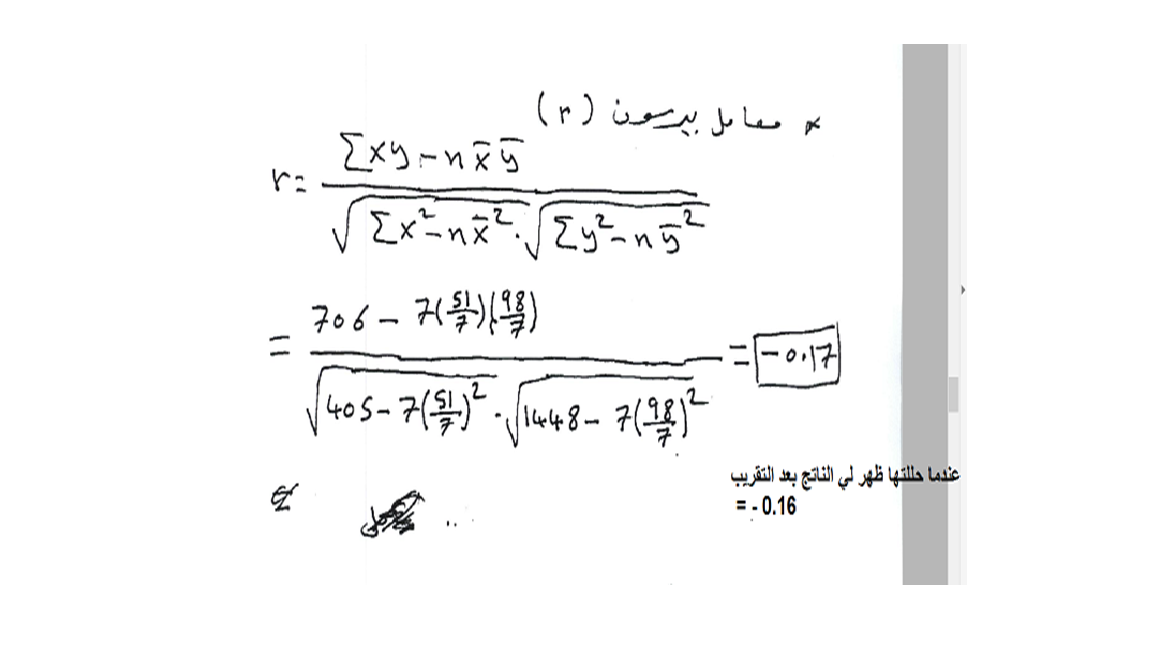 * معامل بيرسون (r)
r = \frac{∑xy - n x̄ ȳ}{\sqrt{∑x² - n x̄²} · \sqrt{∑y² - n ȳ²}}
= \frac{706 - 7(\frac{51}{7})(\frac{98}{7})}{\sqrt{405 - 7(\frac{51}{7})²} · \sqrt{1448 - 7(\frac{98}{7})²}} = -0.17
عندما حللتها ظهر لي الناتج بعد التقريب
= - 0.16